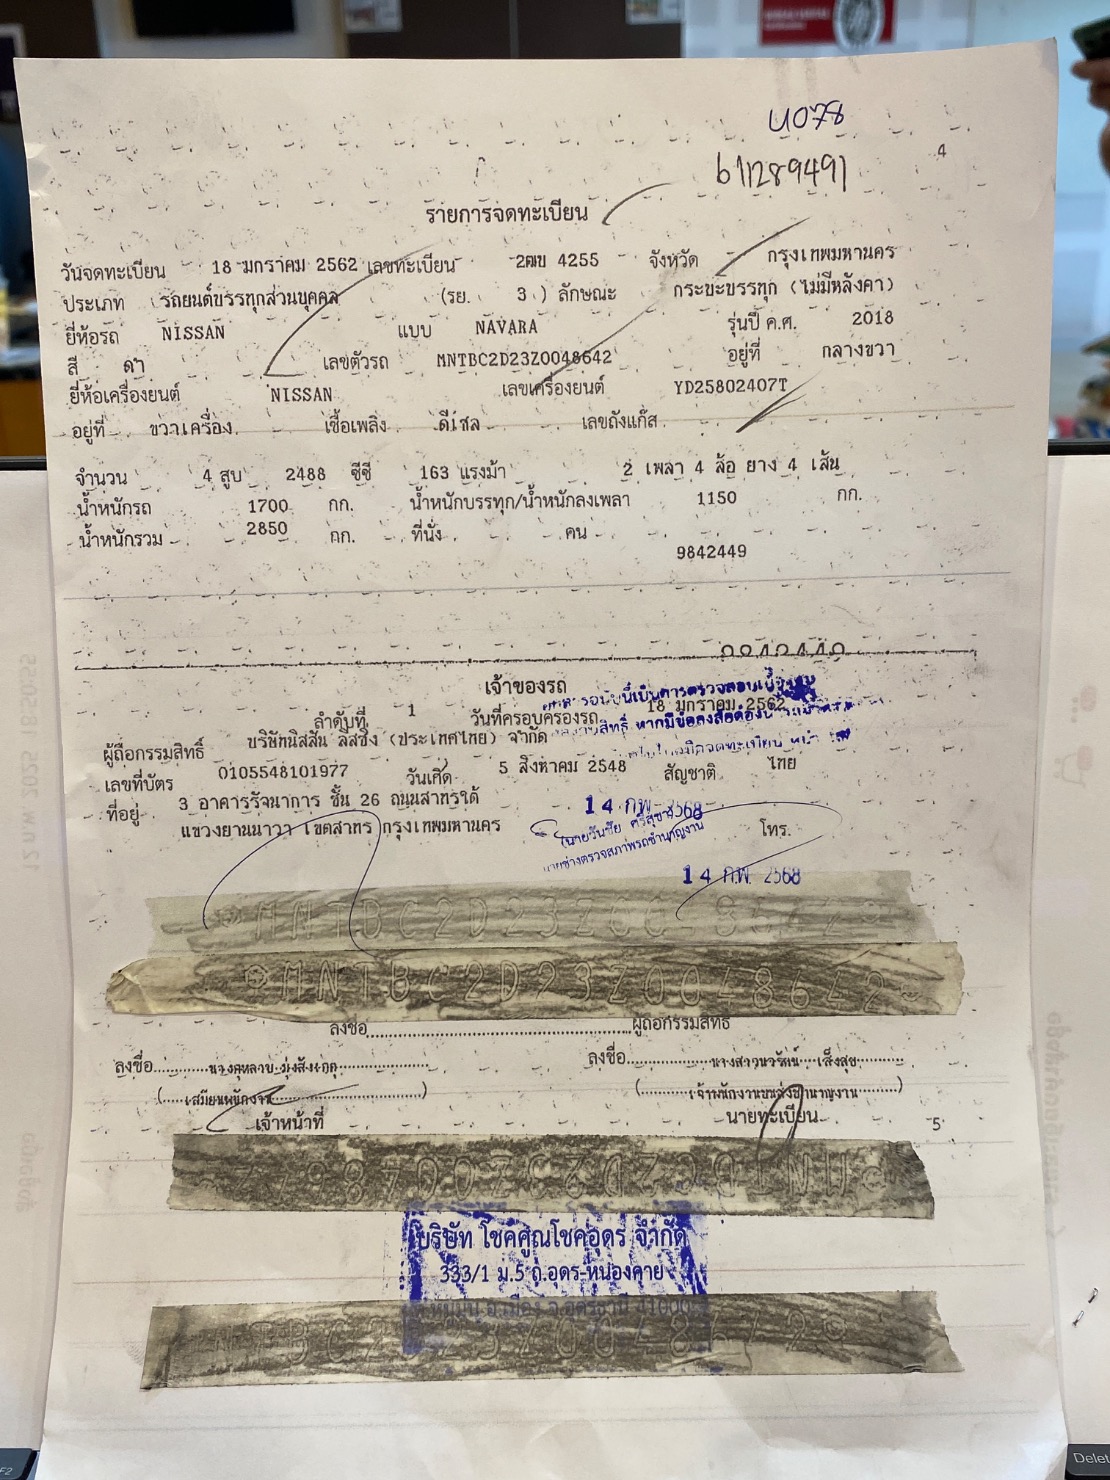 U078
611289491
4
รายการจดทะเบียน
วันจดทะเบียน 18 มกราคม 2562 เลขทะเบียน 2ฒข 4255 จังหวัด กรุงเทพมหานคร
ประเภท รถยนต์บรรทุกส่วนบุคคล (รย. 3 ) ลักษณะ กระบะบรรทุก (ไม่มีหลังคา)
ยี่ห้อรถ NISSAN แบบ NAVARA รุ่นปี ค.ศ. 2018
สี ดำ เลขตัวรถ MNTBC2D23Z0048642 อยู่ที่ กลางขวา
ยี่ห้อเครื่องยนต์ NISSAN เลขเครื่องยนต์ YD25802407T
อยู่ที่ ขวาเครื่อง เชื้อเพลิง ดีเซล เลขถังแก๊ส
จำนวน 4 สูบ 2488 ซีซี 163 แรงม้า 2 เพลา 4 ล้อ ยาง 4 เส้น
น้ำหนักรถ 1700 กก. น้ำหนักบรรทุก/น้ำหนักลงเพลา 1150 กก.
น้ำหนักรวม 2850 กก. ที่นั่ง คน
9842449
เจ้าของรถ
ลำดับที่ 1 วันที่ครอบครองรถ 18 มกราคม 2562
ผู้ถือกรรมสิทธิ์ บริษัทนิสสัน ลีสซิ่ง (ประเทศไทย) จำกัด
เลขที่บัตร 0105548101977 วันเกิด 5 สิงหาคม 2548 สัญชาติ ไทย
ที่อยู่ 3 อาคารรัจนาการ ชั้น 26 ถนนสาทรใต้
แขวงยานนาวา เขตสาทร กรุงเทพมหานคร โทร.
14 ก.พ. 2568
นายช่างตรวจสภาพรถชำนาญงาน
14 ก.พ. 2568
MNTBC2D23Z0048642
ลงชื่อ ผู้ถือกรรมสิทธิ์
ลงชื่อ ลงชื่อ
(เสมียนพนักงาน) (เจ้าพนักงานขนส่งชำนาญงาน)
เจ้าหน้าที่ นายทะเบียน
5
บริษัท โชคคูณโชคอุดร จำกัด
333/1 ม.5 ถ.อุดร-หนองคาย
Delet
F2